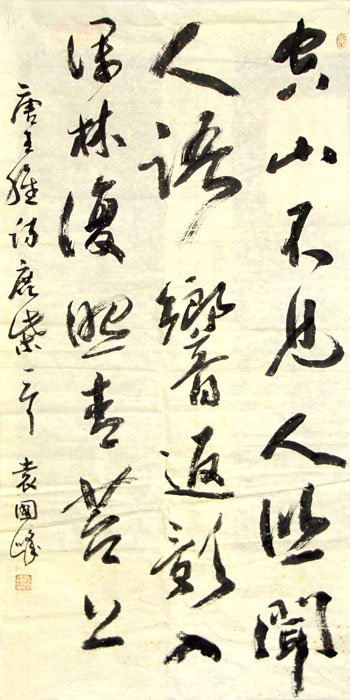 空山不見人但聞
人語響返影入
深林復照青苔上
唐王維詩鹿柴一首 袁國峰